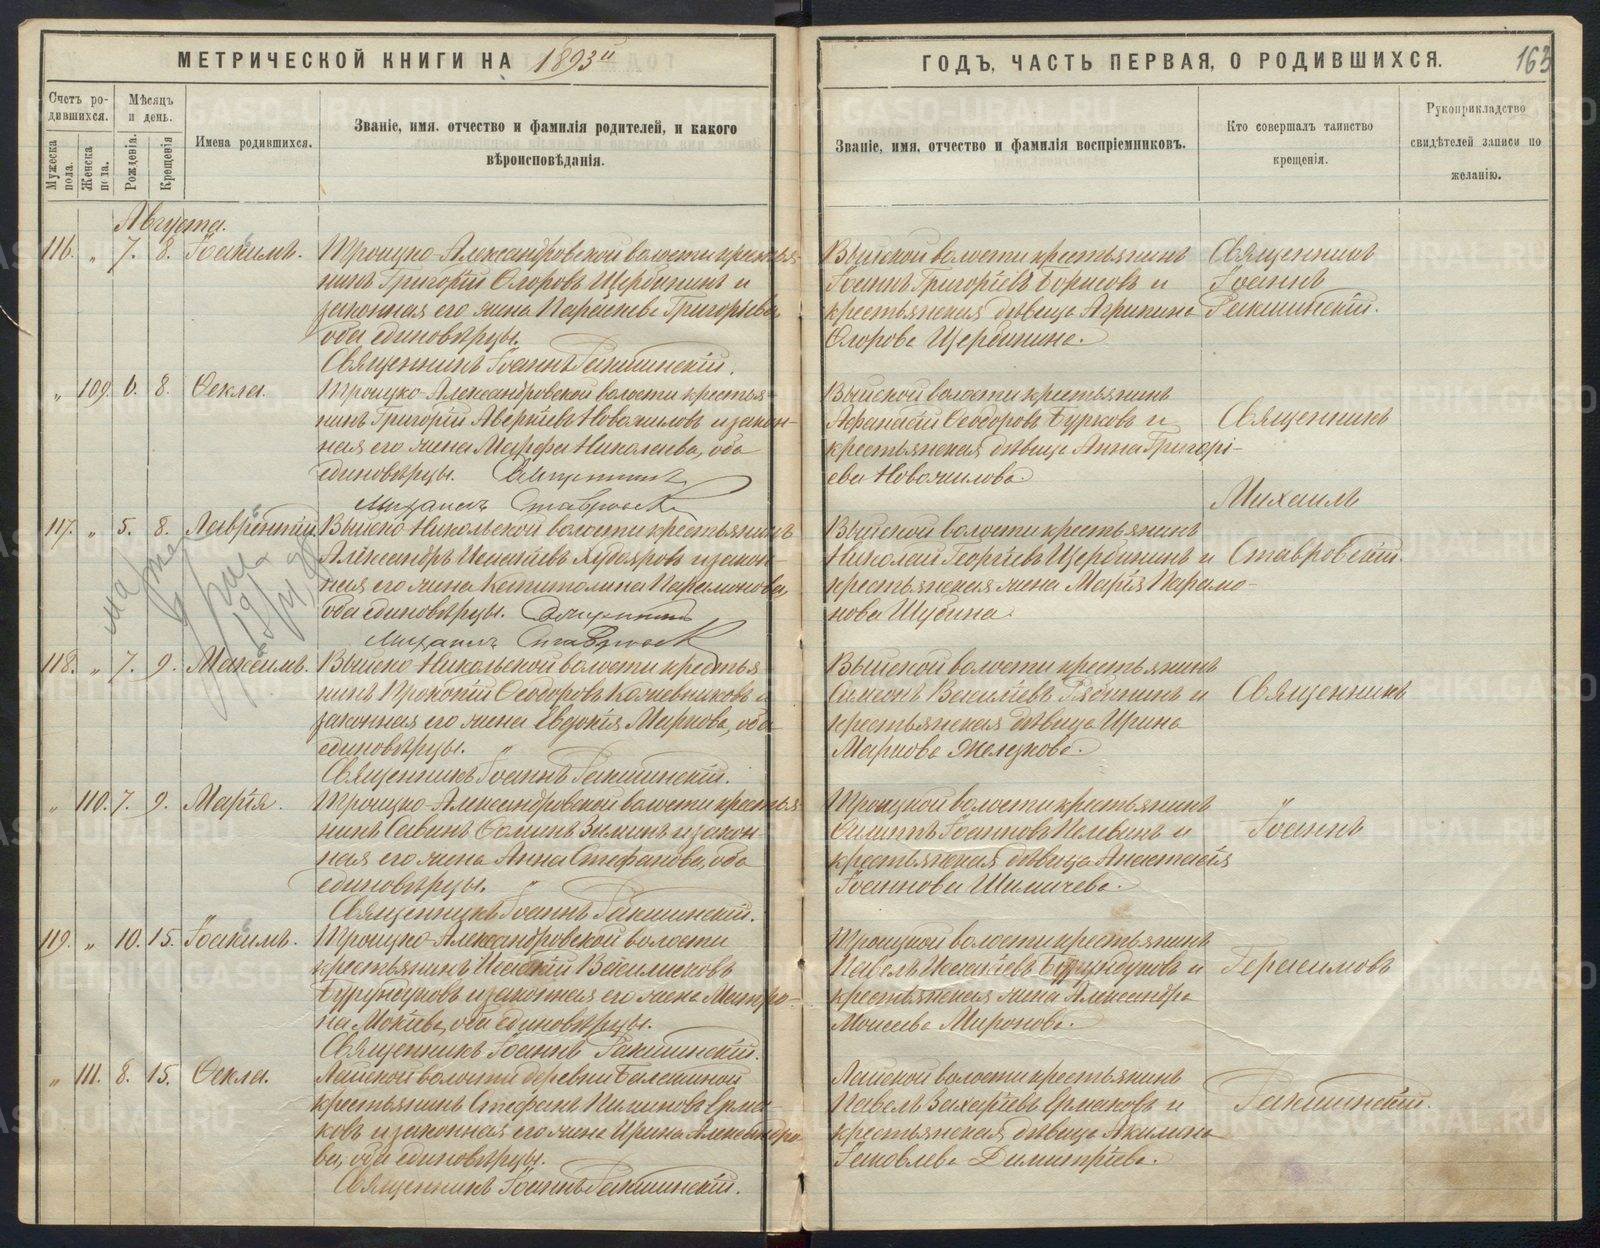 МЕТРИЧЕСКОЙ КНИГИ НА 1893й
Счетъ родившихся.
Мужеска пола.
Женска пола.
Мѣсяцъ и день.
Рожденія.
Крещенія
Имена родившихся.
Званіе, имя, отчество и фамилія родителей, и какого
вѣроисповѣданія.
Августа.
116. „ 7. 8. Іоакимъ. Троицко-Александровской волости крестья-
нинъ Григорій Флоровъ Щербининъ и
законная его жена Параскева Григорьева,
оба единовѣрцы.
Священникъ Іоаннъ Ракшинскій.
„ 109. 6. 8. Ѳекла. Троицко-Александровской волости крестья
нинъ Григорій Аверкіевъ Новожиловъ и закон-
ная его жена Марфа Николаева, оба
единовѣрцы. Священникъ
Михаилъ Ставровскій
117. „ 5. 8. Лаврентій Выйско-Никольской волости крестьянинъ
Александръ Исакіевъ Худояровъ и закон-
ная его жена Капитолина Парамонова,
оба единовѣрцы. Священникъ
Михаилъ Ставровскій
118. „ 7. 9. Максимъ. Выйско-Никольской волости крестья
нинъ Прокопій Ѳеодоровъ Кожевниковъ и
законная его жена Евдокія Маркова, оба
единовѣрцы.
Священникъ Іоаннъ Ракшинскій.
„ 110. 7. 9. Марія. Троицко-Александровской волости крестья
нинъ Савинъ Ѳоминъ Зиминъ и закон-
ная его жена Анна Стефанова, оба
единовѣрцы.
Священникъ Іоаннъ Ракшинскій.
119. „ 10. 15. Іоакимъ. Троицко-Александровской волости
крестьянинъ Исакій Василисковъ
Бурундуковъ и законная его жена Матро-
на Мокіева, оба единовѣрцы.
Священникъ Іоаннъ Ракшинскій.
„ 111. 8. 15. Ѳекла. Лайской волости деревни Балакиной
крестьянинъ Стефанъ Пименовъ Ерма-
ковъ и законная его жена Ирина Александро
ва, оба единовѣрцы.
Священникъ Іоаннъ Ракшинскій.
ГОДЪ, ЧАСТЬ ПЕРВАЯ, О РОДИВШИХСЯ.
163
Званіе, имя, отчество и фамилія воспріемниковъ.
Кто совершалъ таинство
крещенія.
Рукоприкладство
свидѣтелей записи по
желанію.
Выйской волости крестьянинъ
Іоаннъ Григоріевъ Борисовъ и
крестьянская дѣвица Агрипина
Флорова Щербинина.
Священникъ
Іоаннъ
Ракшинскій.
Выйской волости крестьянинъ
Афанасій Ѳеодоровъ Бурковъ и
крестьянская дѣвица Анна Григорі-
ева Новожилова
Священникъ
Михаилъ
Выйской волости крестьянинъ
Николай Георгіевъ Щербининъ и
крестьянская жена Марія Парамо-
нова Шубина.
Ставровскій.
Выйской волости крестьянинъ
Симеонъ Василіевъ Рябининъ и
крестьянская дѣвица Ирина
Маркова Желудкова.
Священникъ
Троицкой волости крестьянинъ
Филиппъ Іоанновъ Пелевинъ и
крестьянская дѣвица Анастасія
Іоаннова Шиличева.
Іоаннъ
Троицкой волости крестьянинъ
Павелъ Исакіевъ Бурундуковъ и
крестьянская жена Александра
Моисеева Миронова.
Герасимовъ
Лайской волости крестьянинъ
Павелъ Захаріевъ Ермаковъ и
крестьянская дѣвица Акилина
Іаковлева Димитріева.
Ракшинскій.
METRIKI.GASO-URAL.RU